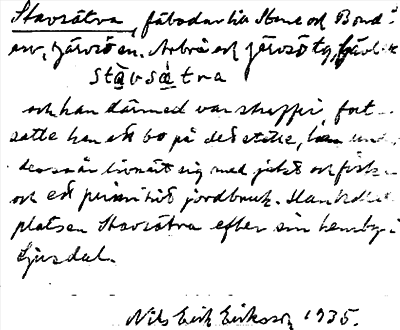 Stavsätra, fäbodar till Stene och Bond-
arv, Järvsö sn. Arbrå och Järvsö tg, Gävle
stàvsàtra
och han därmed var skeppe, fort-
satte han att bo på det ställe, han
dessa år livnärt sig med jakt och fiske
och ett primitivt jordbruk. Han kallade
platsen Stavsätra efter sin hemby i
Ljusdal.
Nils Erik Eriksson 1935.